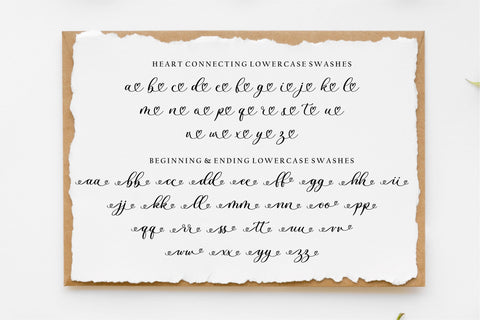 HEART CONNECTING LOWERCASE SWASHES
a b c d e f g i j k l
m n o p q r s t u
v w x y z
BEGINNING & ENDING LOWERCASE SWASHES
aa bb cc dd ee ff gg hh ii
jj kk ll mm nn oo pp
qq rr ss tt uu vv
ww xx yy zz